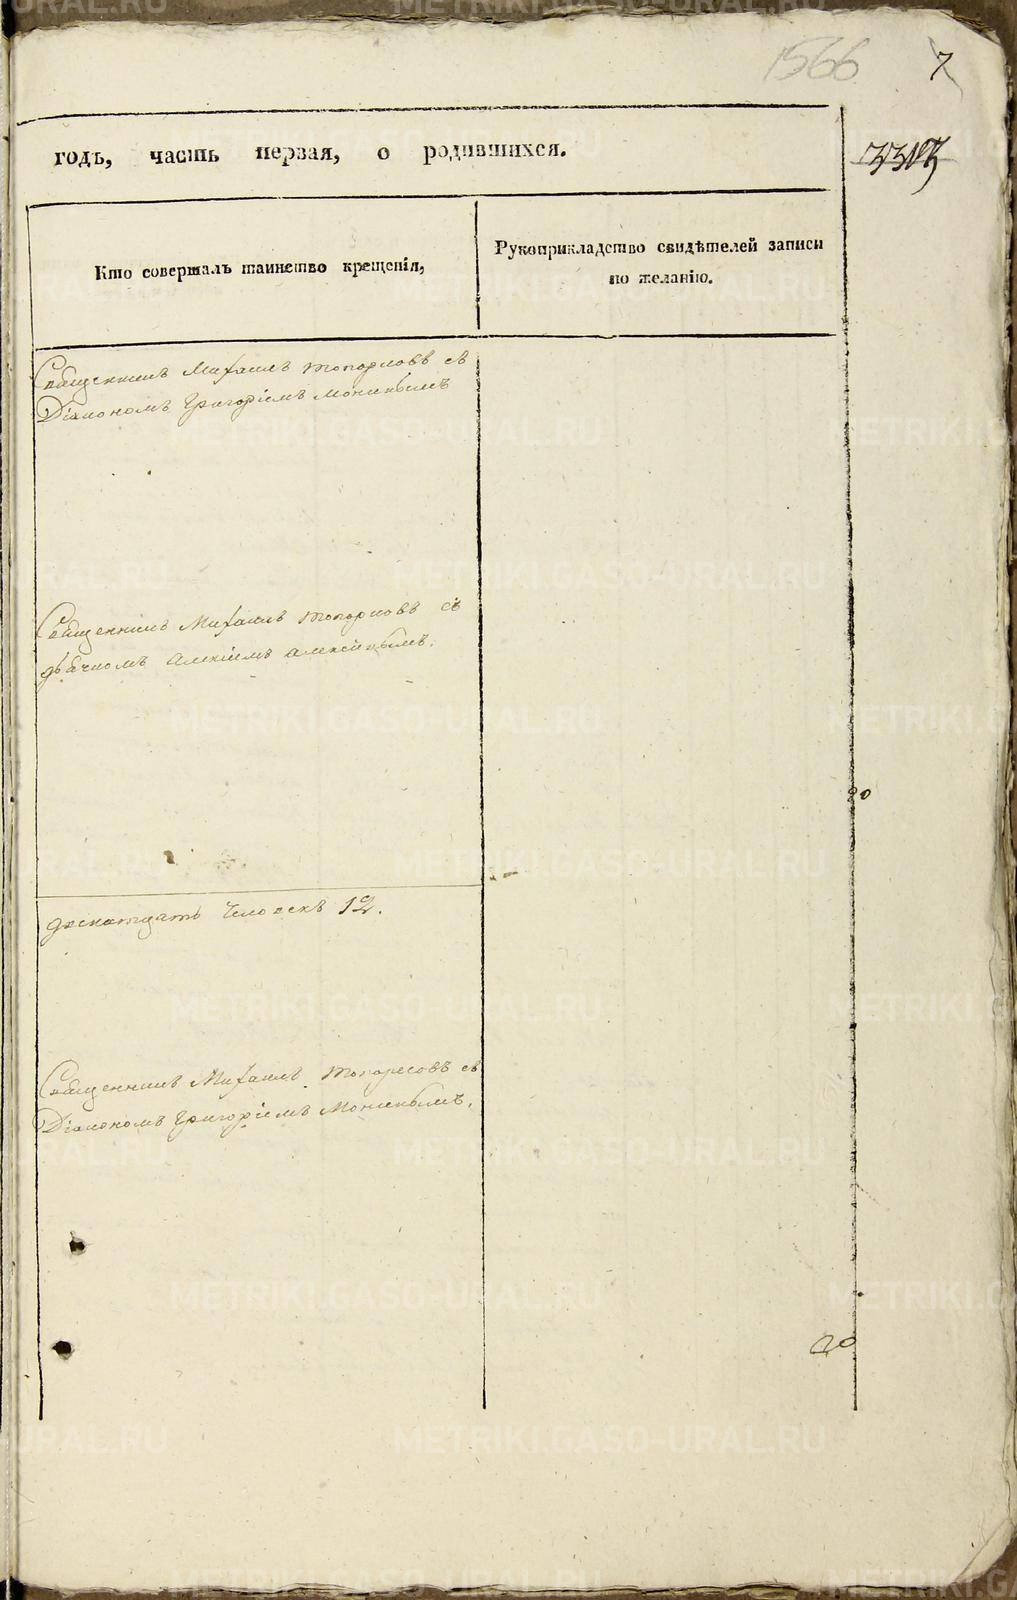 1566
7
годъ, часть первая, о родившихся.
Кто совершалъ таинство крещенія,
Рукоприкладство свидѣтелей записи
по желанію.
Священникъ Михаилъ Топорковъ съ
Діакономъ Григоріемъ
Священникъ Михаилъ Топорковъ съ
дьячкомъ Алексіемъ
20
двенатцать человекъ 12.
Священникъ Михаилъ Топорковъ съ
Діакономъ Григоріемъ
20
METRIKI.GASO-URAL.RU